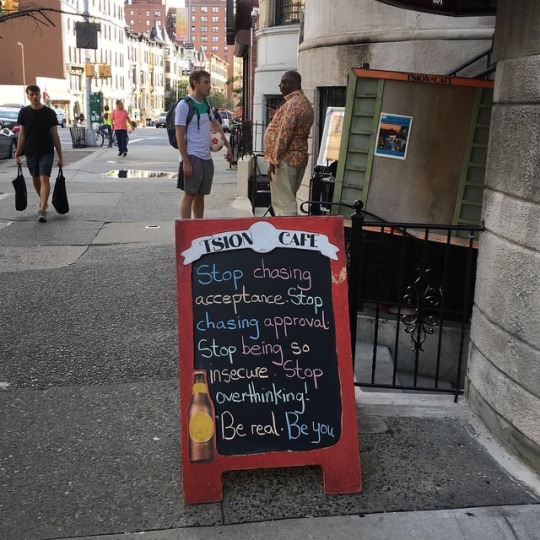 TSION CAFE
TSION CAFE
Stop chasing
acceptance. Stop
chasing approval.
Stop being so
insecure. Stop
overthinking!
Be real. Be you